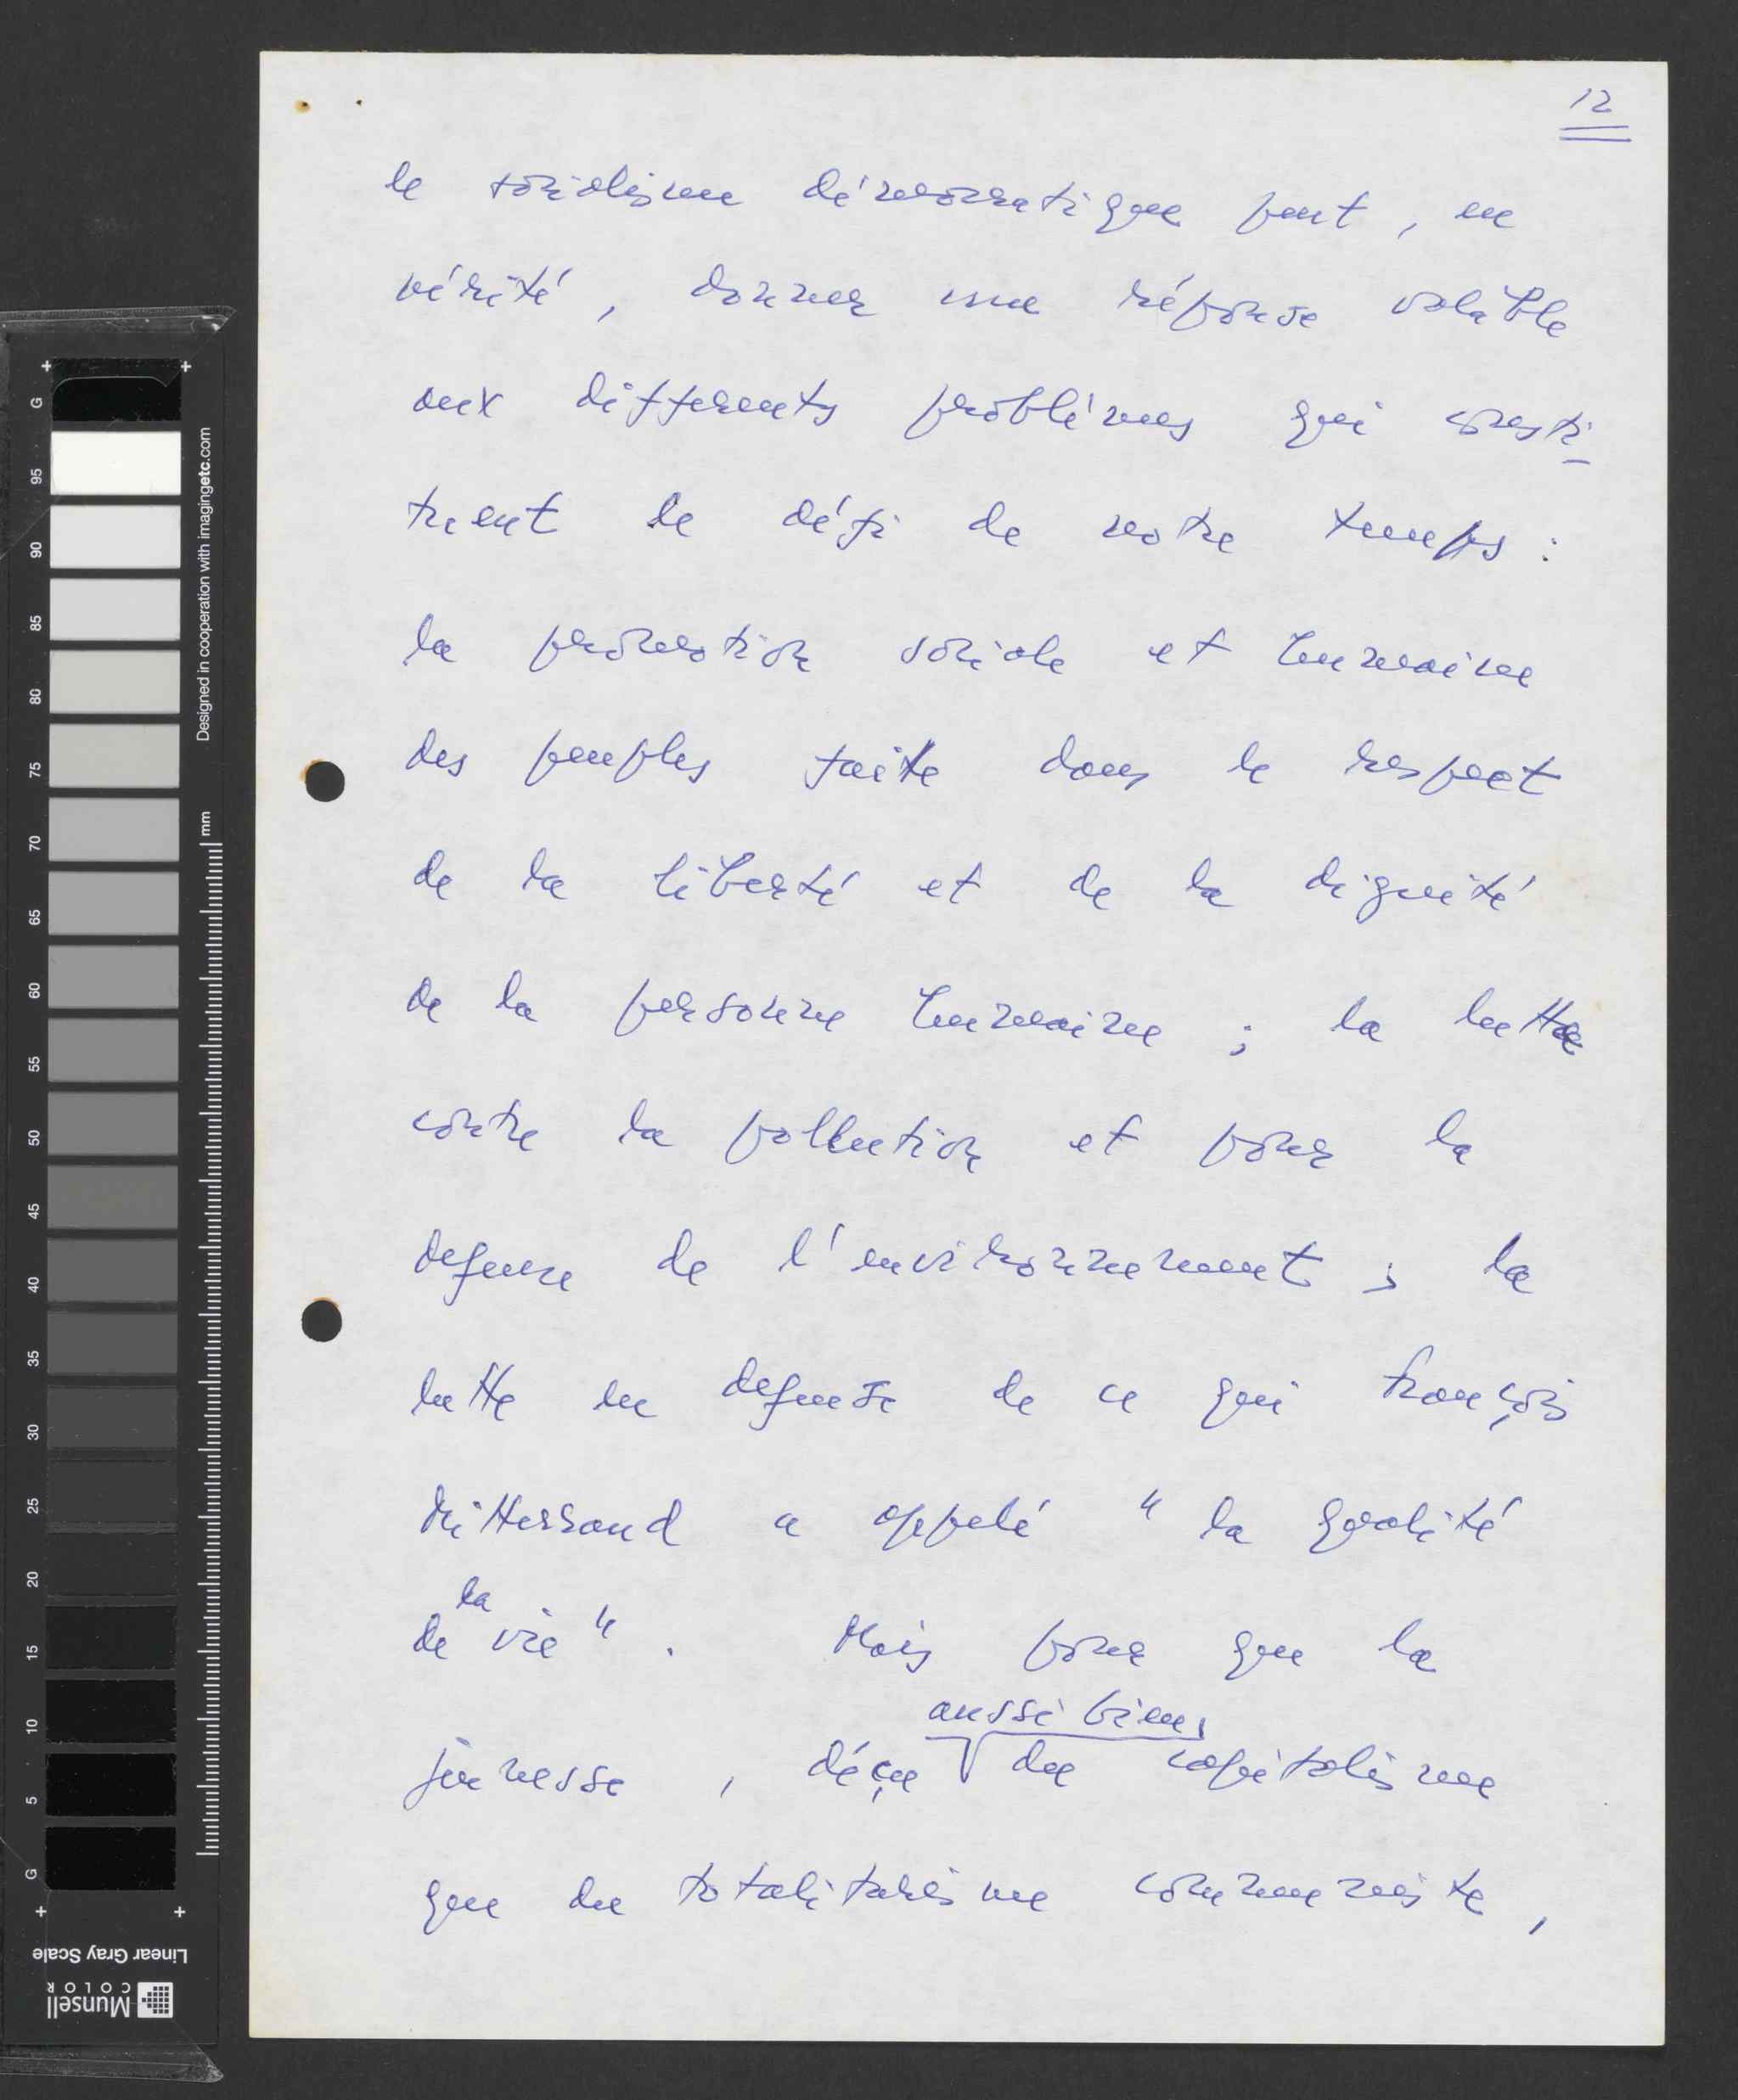 12
le socialisme démocratique peut, en
vérité, donner une réponse valable
aux differents problémes qui consti-
tuent le défi de notre temps :
la promotion sociale et humaine
des peuples faite dans le respect
de la liberté et de la dignité
de la personne humaine ; la lutte
contre la pollution et pour la
defense de l'environnement ; la
lutte en defense de ce qui François
Mitterrand a appelé "la qualité
de la vie". Mais pour que la
jeunesse, déçue aussi bien du capitalisme
que du totalitarisme communiste,
G 95 90 85 80 75 70 65 60 55 50 45 40 35 30 25 20 15 10 5 G
Designed in cooperation with imagingetc.com
mm
Linear Gray Scale
Munsell
COLOR